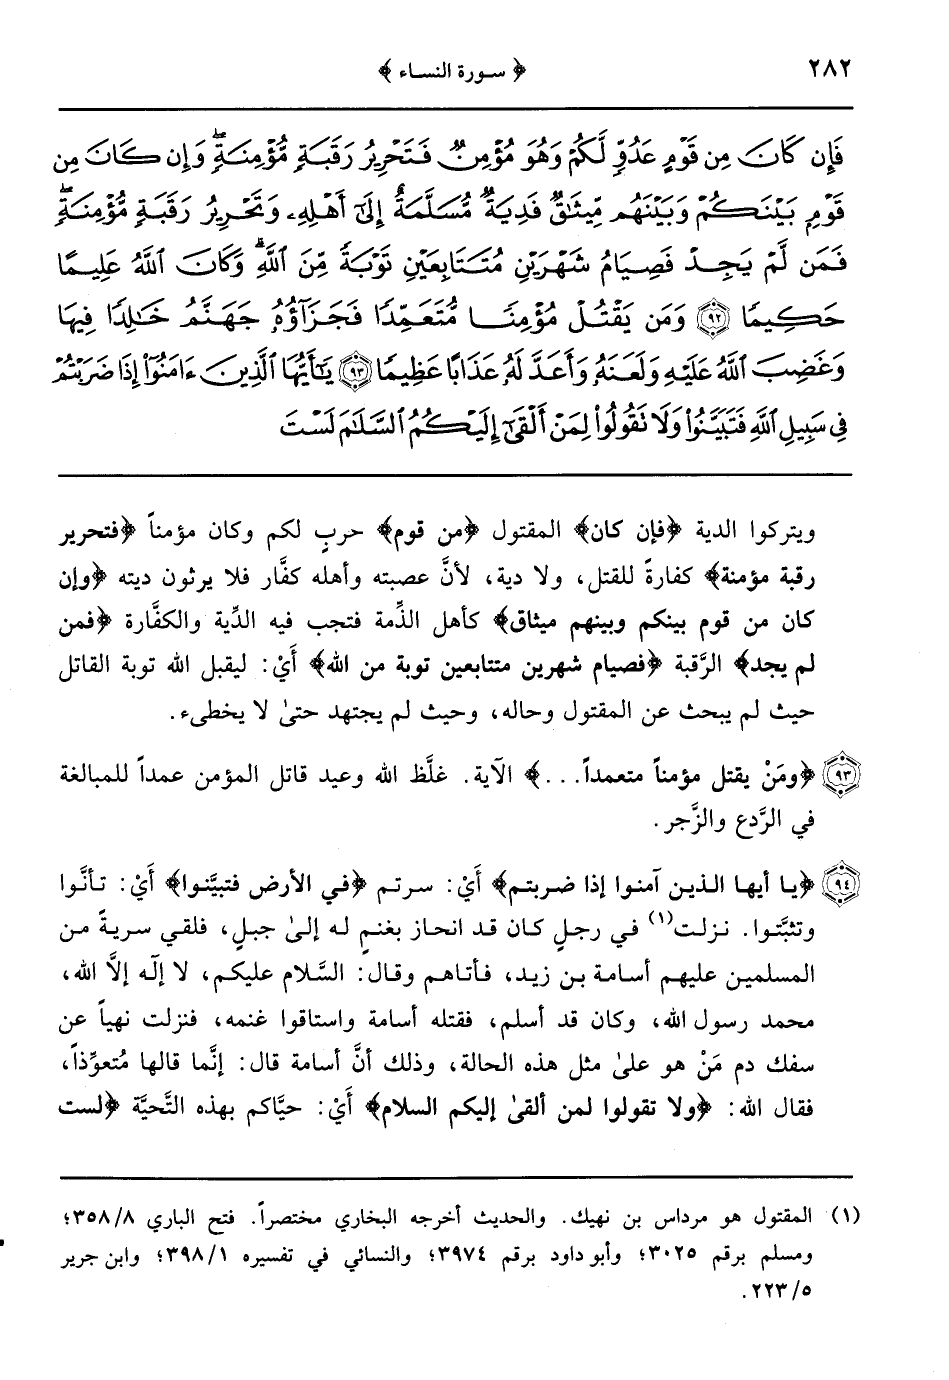 ٢٨٢
﴿ سورة النساء ﴾
فَإِن كَانَ مِن قَوْمٍ عَدُوٍّ لَّكُمْ وَهُوَ مُؤْمِنٌ فَتَحْرِيرُ رَقَبَةٍ مُّؤْمِنَةٍ ۖ وَإِن كَانَ مِن
قَوْمٍ بَيْنَكُمْ وَبَيْنَهُم مِّيثَاقٌ فَدِيَةٌ مُّسَلَّمَةٌ إِلَىٰ أَهْلِهِ وَتَحْرِيرُ رَقَبَةٍ مُّؤْمِنَةٍ ۖ
فَمَن لَّمْ يَجِدْ فَصِيَامُ شَهْرَيْنِ مُتَتَابِعَيْنِ تَوْبَةً مِّنَ ٱللَّهِ ۗ وَكَانَ ٱللَّهُ عَلِيمًا
حَكِيمًا ﴿٩٢﴾ وَمَن يَقْتُلْ مُؤْمِنًا مُّتَعَمِّدًا فَجَزَآؤُهُ جَهَنَّمُ خَٰلِدًا فِيهَا
وَغَضِبَ ٱللَّهُ عَلَيْهِ وَلَعَنَهُ وَأَعَدَّ لَهُ عَذَابًا عَظِيمًا ﴿٩٣﴾ يَٰٓأَيُّهَا ٱلَّذِينَ ءَامَنُوٓا۟ إِذَا ضَرَبْتُمْ
فِى سَبِيلِ ٱللَّهِ فَتَبَيَّنُوا۟ وَلَا تَقُولُوا۟ لِمَنْ أَلْقَىٰٓ إِلَيْكُمُ ٱلسَّلَٰمَ لَسْتَ
ويتركوا الدية ﴿فإن كان﴾ المقتول ﴿من قوم﴾ حربٍ لكم وكان مؤمناً ﴿فتحرير
رقبة مؤمنة﴾ كفارةً للقتل، ولا دية، لأنَّ عصبته وأهله كفَّار فلا يرثون ديته ﴿وإن
كان من قوم بينكم وبينهم ميثاق﴾ كأهل الذِّمة فتجب فيه الدِّية والكفَّارة ﴿فمن
لم يجد﴾ الرَّقبة ﴿فصيام شهرين متتابعين توبة من الله﴾ أَيْ: ليقبل الله توبة القاتل
حيث لم يبحث عن المقتول وحاله، وحيث لم يجتهد حتىٰ لا يخطىء.
٩٣ ﴿ومَنْ يقتل مؤمناً متعمداً...﴾ الآية. غلَّظ الله وعيد قاتل المؤمن عمداً للمبالغة
في الرَّدع والزَّجر.
٩٤ ﴿يا أيها الذين آمنوا إذا ضربتم﴾ أَيْ: سرتم ﴿في الأرض فتبيَّنوا﴾ أَيْ: تأنَّوا
وتثبَّتوا. نزلت(١) في رجلٍ كان قد انحاز بغنمٍ له إلىٰ جبلٍ، فلقي سريةً من
المسلمين عليهم أسامة بن زيد، فأتاهم وقال: السَّلام عليكم، لا إلٰه إلاَّ الله،
محمد رسول الله، وكان قد أسلم، فقتله أسامة واستاقوا غنمه، فنزلت نهياً عن
سفك دم مَنْ هو علىٰ مثل هذه الحالة، وذلك أنَّ أسامة قال: إنَّما قالها مُتعوِّذاً،
فقال الله: ﴿ولا تقولوا لمن ألقىٰ إليكم السلام﴾ أَيْ: حيَّاكم بهذه التَّحيَّة ﴿لست
(١) المقتول هو مرداس بن نهيك. والحديث أخرجه البخاري مختصراً. فتح الباري ٣٥٨/٨؛
ومسلم برقم ٣٠٢٥؛ وأبو داود برقم ٣٩٧٤؛ والنسائي في تفسيره ٣٩٨/١؛ وابن جرير
٢٢٣/٥.